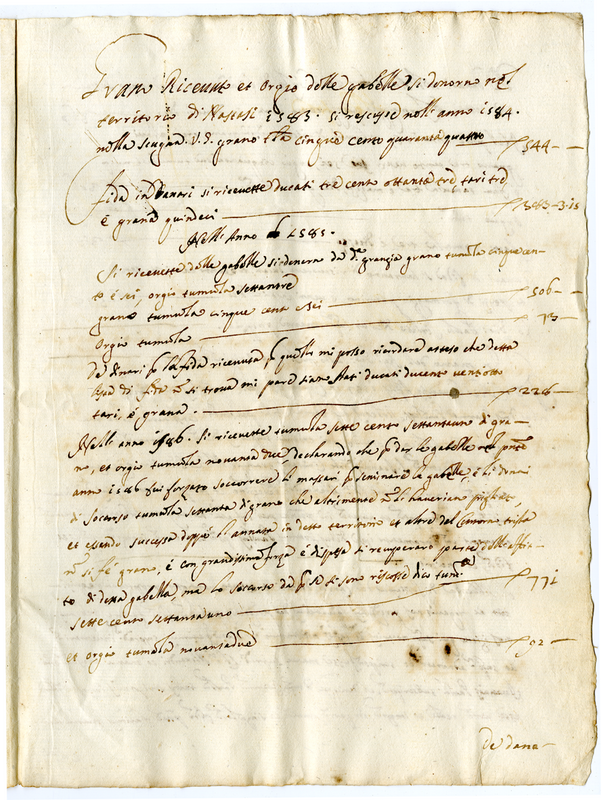 Grano Riceuuto et Orgio delle gabelle si donorno nel
territorio di Nastasi 1583. si rescosse nell'anno 1584.
grano cinque cento quaranta quattro 544
fida in danari si riceuette ducati tre cento ottanta tre, tari tre,
è grana quindeci 383-3-15
Nell'Anno 1585.
Si riceuette dalle gabelle grano tumula cinquecen-
to è sei, orgio tumula settantatre
grano tumula cinque cento Sei 506
Orgio tumula 73
De denari la fida riceuuta quello mi posso ricordare atteso che detta
di fida si troua mi pare siano stati ducati ducento vent'otto
tari, è grana. 228
Nell'anno 1586. Si riceuette tumula sette cento settantauno di gra-
no, et orgio tumula nouanta due, declarando che le gabelle
anno 1586 fui forzato soccorrere li massari seminare le gabelle, è li donai
di soccorso tumula settanta di grano che altrimente haueriano
et essendo successa doppò l'annata in detto territorio et altre del trista
si fè grano, è con grandissima forza è dispesa si recuperaro parte
to di detta gabella, ma lo soccorso si sono riscosse dico
sette cento settantauno 771
et orgio tumula nouantadue 92
de dana-